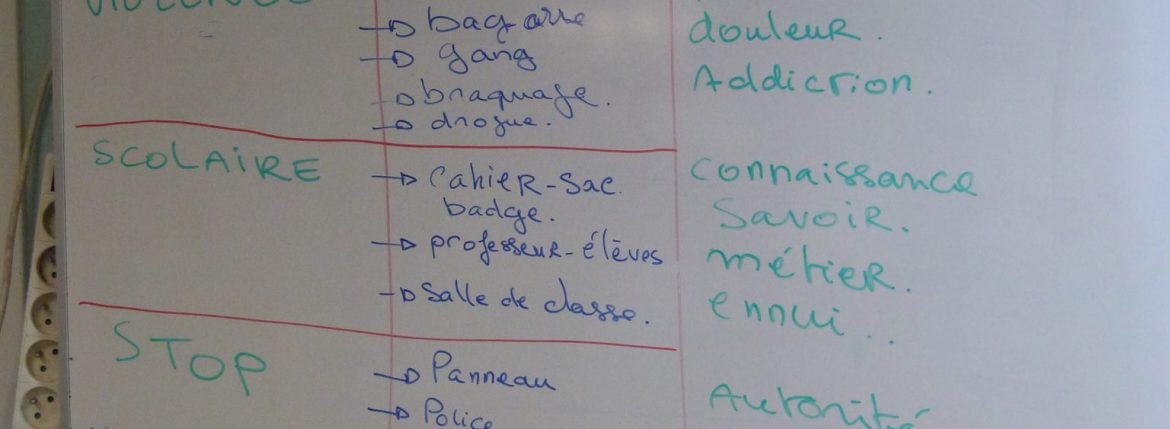 VIOLENCE
→ bagarre
→ gang
→ braquage.
→ drogue.
douleur.
Addiction.
SCOLAIRE
→ Cahier-Sac.
badge.
→ professeur-élèves
→ Salle de classe.
connaissance
Savoir.
métier.
ennui...
STOP
→ Panneau
→ Police
Autorité